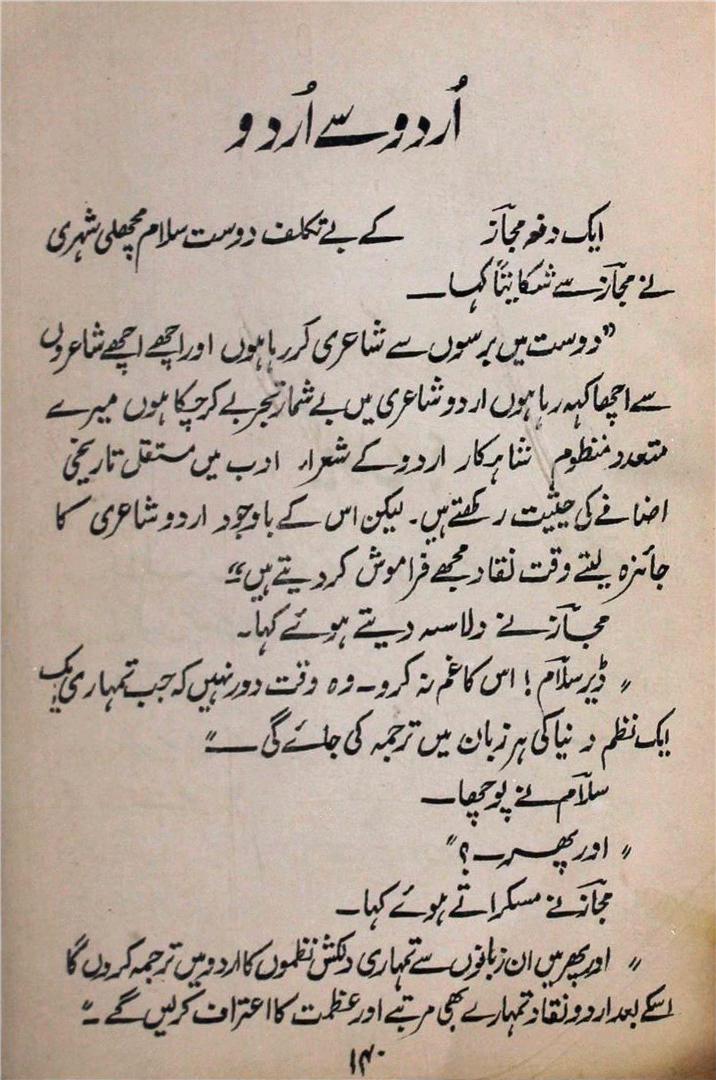 اُردو سے اُردو
ایک دفعہ مجاز کے بے تکلف دوست سلام مچھلی شہری
نے مجاز سے شکایتاً کہا۔
"دوست میں برسوں سے شاعری کر رہا ہوں اور اچھے اچھے شاعروں
سے اچھا کہہ رہا ہوں اردو شاعری میں بے شمار تجربے کر چکا ہوں میرے
متعدد منظوم شاہکار اردو کے شعراء ادب میں مستقل تاریخی
اضافے کی حیثیت رکھتے ہیں۔ لیکن اس کے باوجود اردو شاعری کا
جائزہ لیتے وقت نقاد مجھے فراموش کر دیتے ہیں"
مجاز نے دلاسہ دیتے ہوئے کہا۔
"ڈیر سلام! اس کا غم نہ کرو۔ وہ وقت دور نہیں کہ جب تمہاری ایک
ایک نظم دنیا کی ہر زبان میں ترجمہ کی جائے گی۔"
سلام نے پوچھا۔
"اور پھر۔؟"
مجاز نے مسکراتے ہوئے کہا۔
"اور پھر میں ان زبانوں سے تمہاری دلکش نظموں کا اردو میں ترجمہ کروں گا
اسکے بعد اردو نقاد تمہارے بھی مرتبے اور عظمت کا اعتراف کرلیں گے۔"
۱۴۰